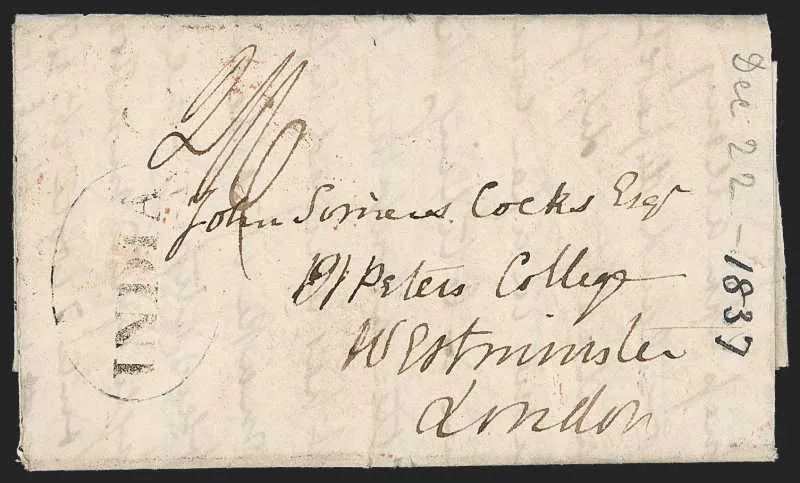 INDIA
John Somers Cocks Esqr
St Peters College
Westminster
London
Dec 22 - 1837